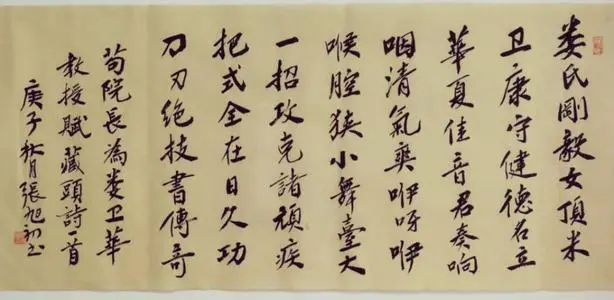 娄氏剛毅女頂米
卫康守健德名立
華夏佳音君奏响
咽清氣爽咿呀咿
喉腔狭小舞臺大
一招攻克諸頑疾
把式全在日久功
刀刃绝技書傳奇
荀院長為娄卫華
教授賦藏頭詩一首
庚子秋月張旭初书